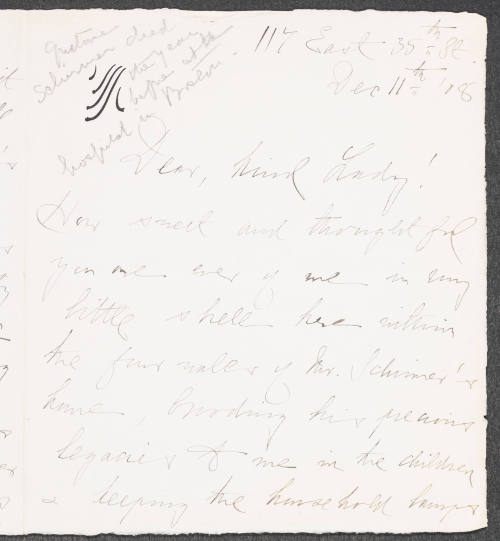 Gustave
Schirmer died
the year
before at the
hospital in
Boston
117 East 35th St.
Dec 11th '08
Dear, kind Lady!
How sweet and thoughtful
you are ever of me in my
little shell here within
the four walls of Mr. Schirmer's
home, brooding his precious
legacies to me in the children
& keeping the household lamps